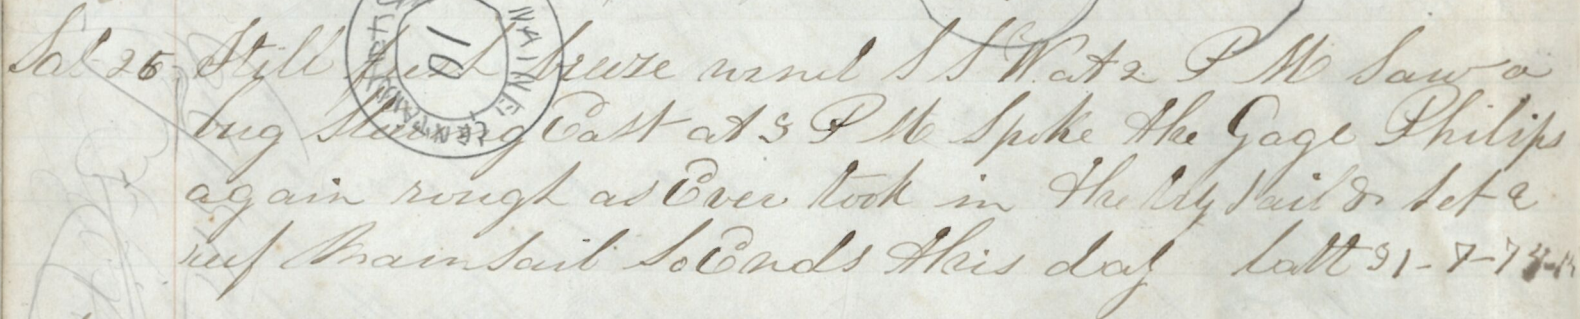 Sat 26 Still fresh breeze wind S S W. at 2 P M Saw a
brig Steering East at 3 P M Spoke the Gage Philips
again rough as Ever took in the try Sail & Set 2
reef Mainsail So Ends this day latt 31-7-7
10